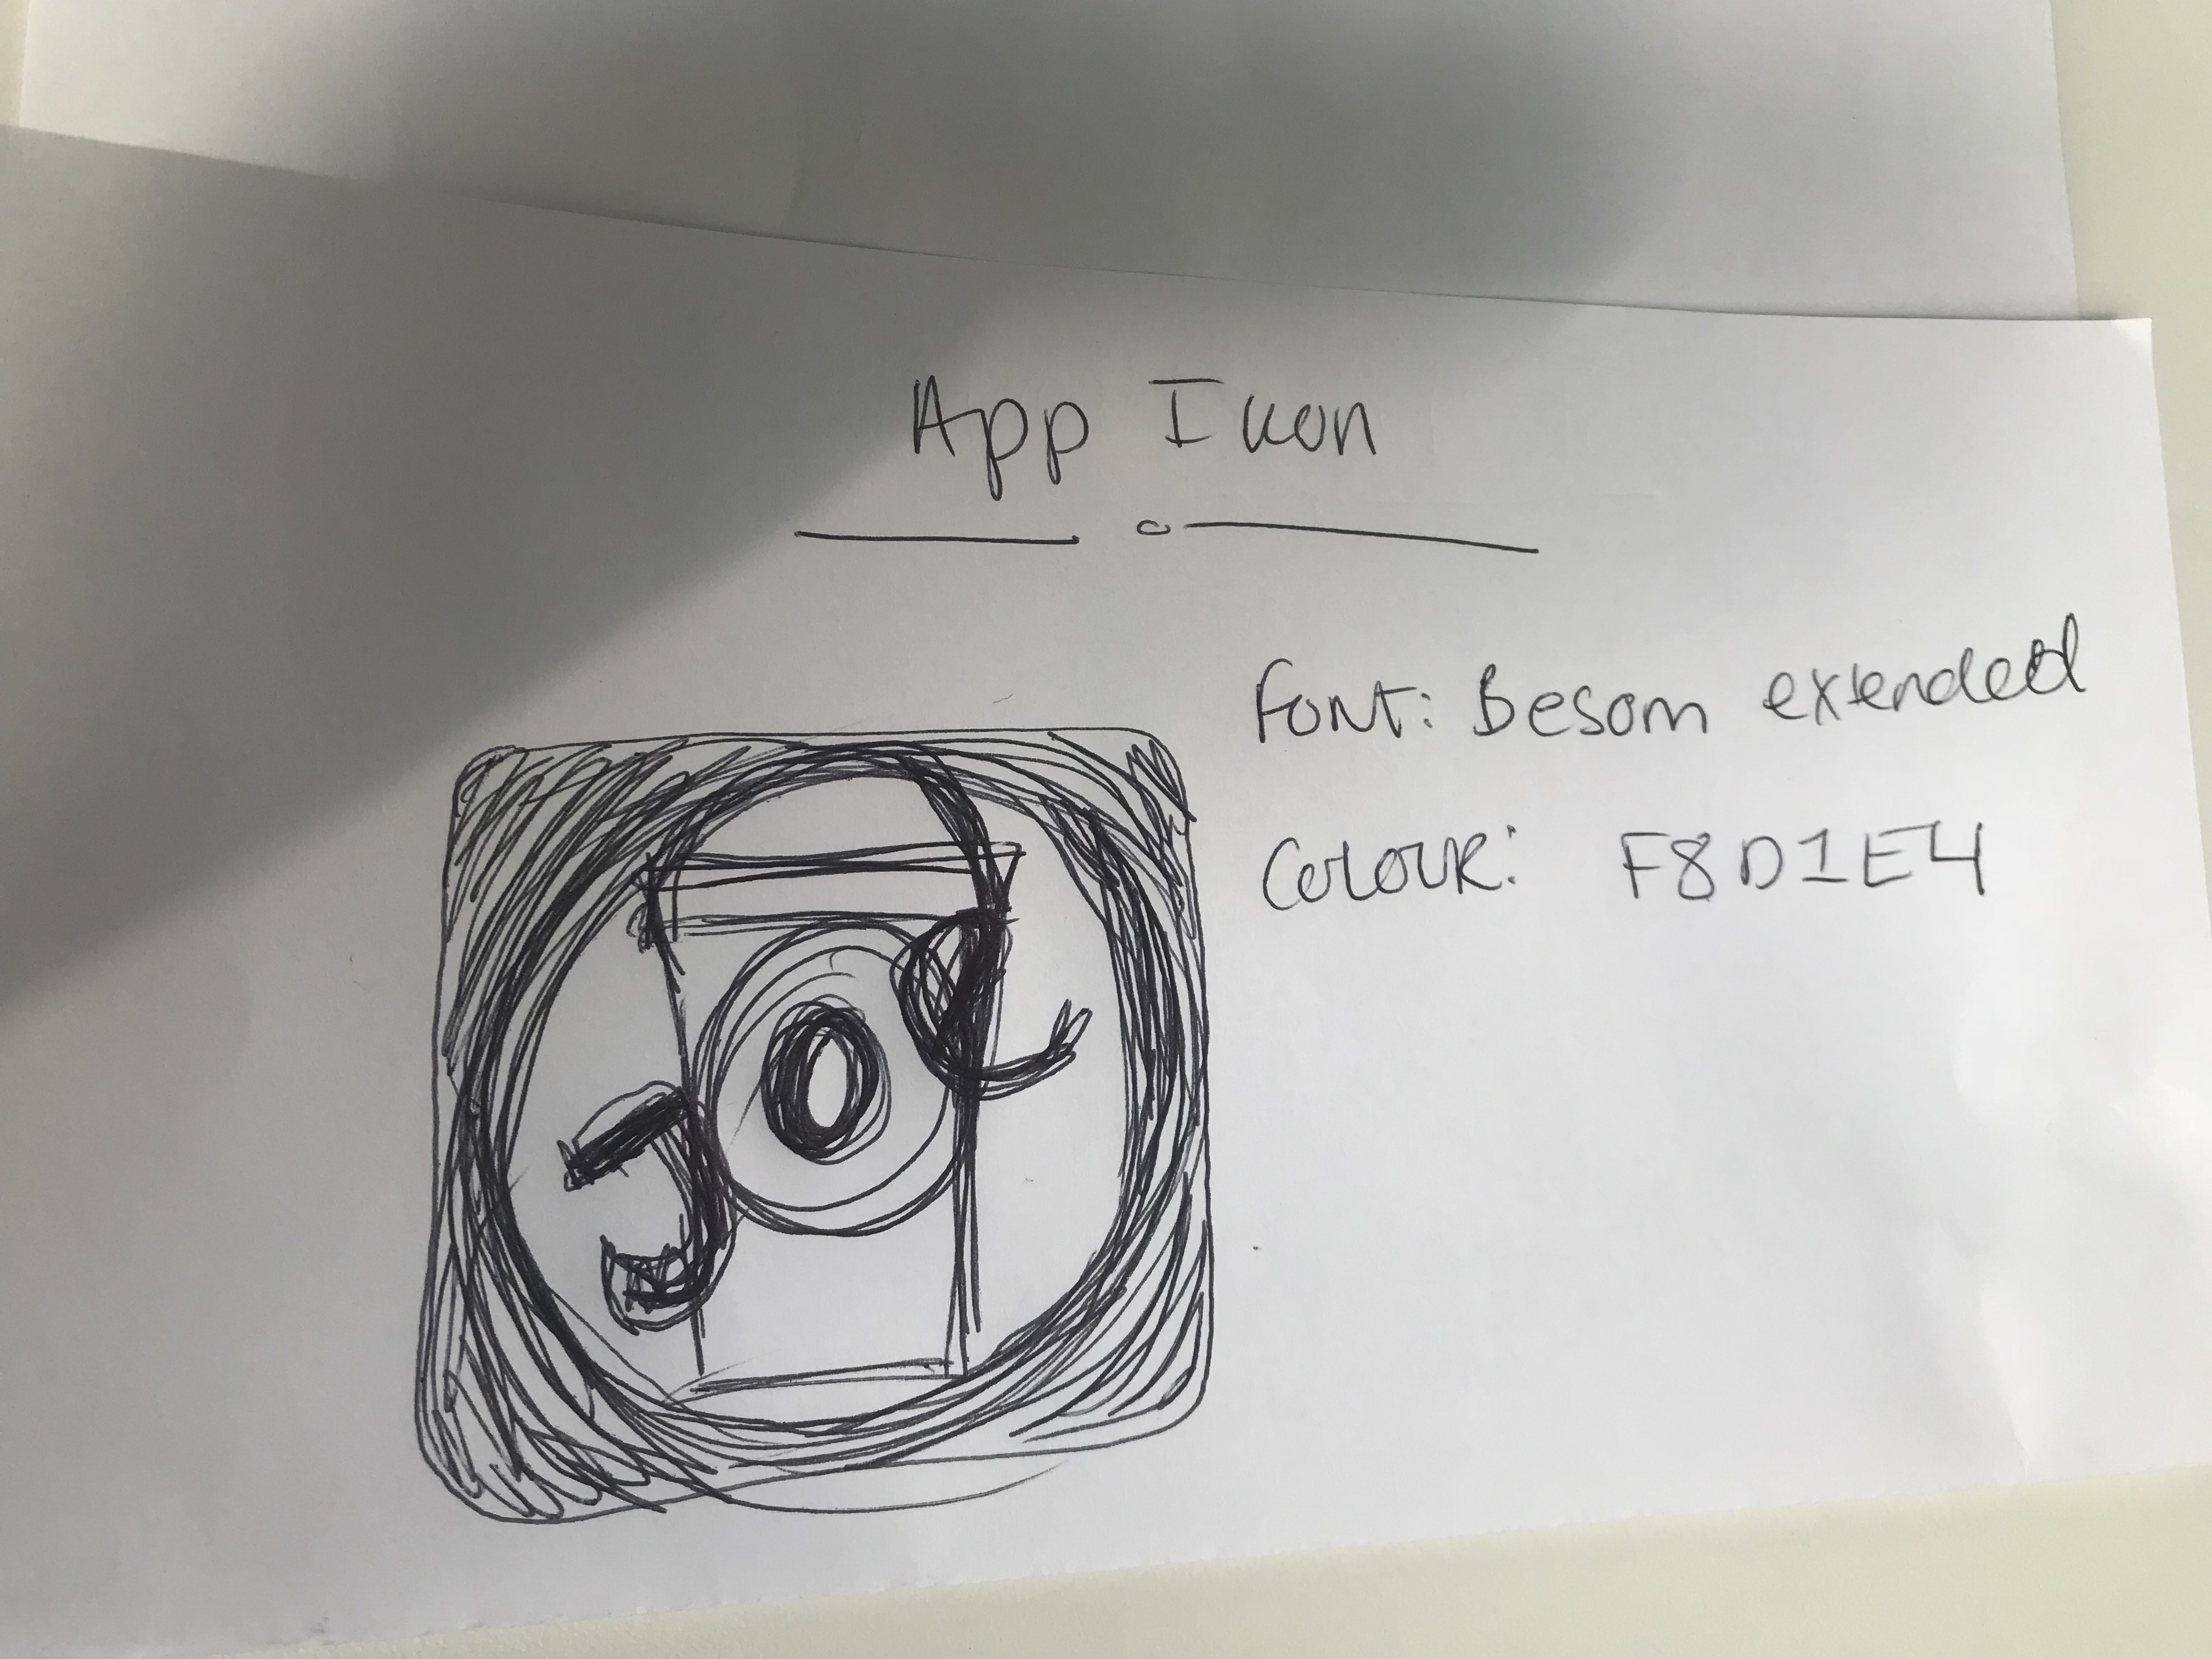 App Ikon
Font: Besom extended
Colour: F8D1E4
J
O